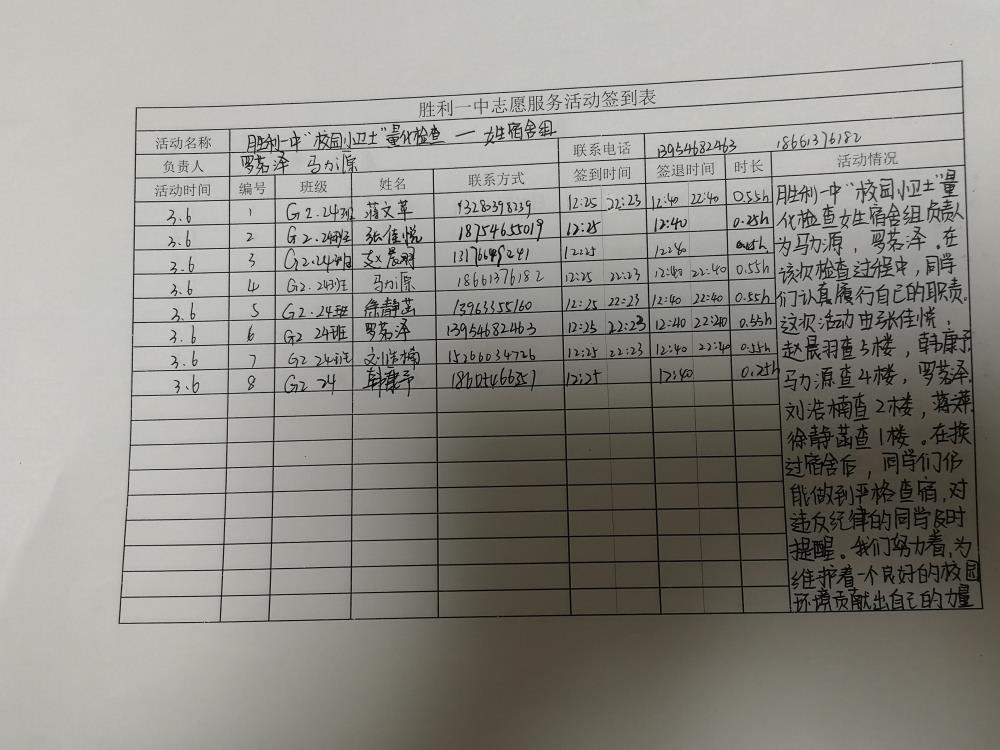 胜利一中志愿服务活动签到表
活动名称 胜利一中“校园小卫士”量化检查 — 女生宿舍组
负责人 罗若泽 马力源 联系电话 13954682463 18661376182
活动时间 编号 班级 姓名 联系方式 签到时间 签退时间 时长 活动情况
3.6 1 G2.24班 蒋文革 13280398239 12:25 22:23 12:40 22:40 0.55h
3.6 2 G2.24班 张佳悦 18754655019 12:25 12:40 0.25h
3.6 3 G2.24班 赵晨羽 12:25 12:40 0.25h
3.6 4 G2.24班 马力源 18661376182 12:25 22:23 12:40 22:40 0.55h
3.6 5 G2.24班 徐静菡 13963355160 12:25 22:23 12:40 22:40 0.55h
3.6 6 G2 24班 罗若泽 13954682463 12:25 22:23 12:40 22:40 0.55h
3.6 7 G2 24班 刘浩楠 15266034726 12:25 22:23 12:40 22:40 0.55h
3.6 8 G2 24 韩康予 12:25 12:40 0.25h
胜利一中“校园小卫士”量
化检查女生宿舍组负责人
为马力源，罗若泽。在
该次检查过程中，同学
们认真履行自己的职责。
这次活动由张佳悦，
赵晨羽查5楼，韩康予
马力源查4楼，罗若泽
刘浩楠查2楼，蒋
徐静菡查1楼。在换
过宿舍后，同学们仍
能做到严格查宿，对
违反纪律的同学及时
提醒。我们努力着，为
维护着一个良好的校园
环境贡献出自己的力量